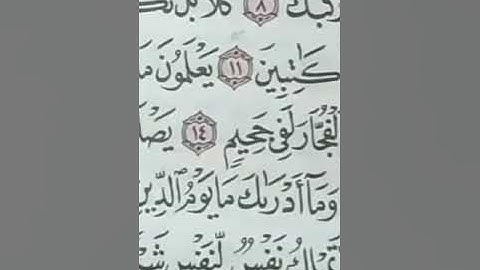 رَكَّبَكَ ٨ كَلَّا بَلْ تُكَ
كَٰتِبِينَ ١١ يَعْلَمُونَ مَ
لْفُجَّارَ لَفِى جَحِيمٍ ١٤ يَصْلَ
وَمَآ أَدْرَىٰكَ مَا يَوْمُ ٱلدِّينِ
تَمْلِكُ نَفْسٌ لِّنَفْسٍ شَيْ